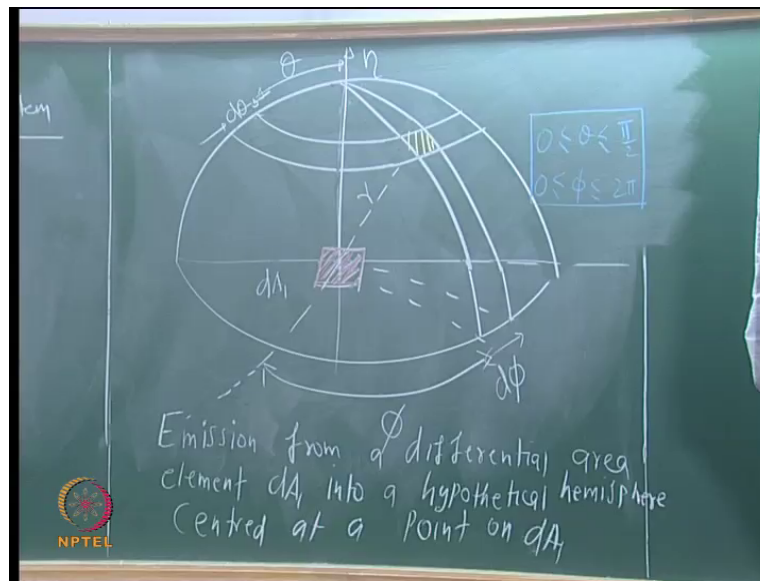 tem
θ
η
dθ
0 ≤ θ ≤ π/2
0 ≤ φ ≤ 2π
dA₁
dφ
φ
Emission from a differential area
element dA₁ into a hypothetical hemisphere
Centred at a point on dA₁
NPTEL